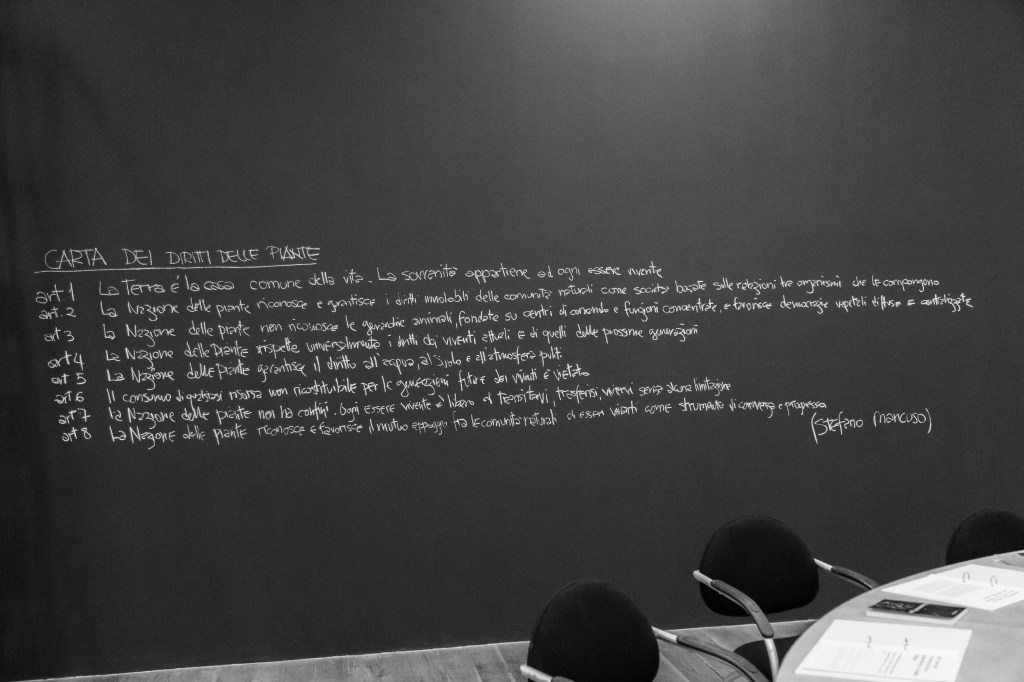 CARTA DEI DIRITTI DELLE PIANTE
art.1 La Terra é la casa comune della vita. La sovranità appartiene ad ogni essere vivente
art.2 La Nazione delle piante riconosce e garantisce i diritti inviolabili delle comunità naturali come società basate sulle relazioni tra organismi che le compongono
art 3 La Nazione delle piante non riconosce le gerarchie animali, fondate su centri di comando e funzioni concentrate, e favorisce democrazie vegetali diffuse e
art 4 La Nazione delle Piante rispetta universalmente i diritti dei viventi attuali e di quelli delle prossime generazioni
art 5 La Nazione delle piante garantisce il diritto all'acqua, al suolo e all'atmosfera puliti
art 6 Il consumo di qualsiasi risorsa non ricostituibile per le generazioni future dei viventi è vietato
art 7 La Nazione delle piante non ha confini. Ogni essere vivente è libero di transitarvi, trasferirsi, vivervi senza alcuna limitazione
art 8 La Nazione delle piante riconosce e favorisce il mutuo appoggio fra le comunità naturali di esseri viventi come strumento di convivenza e progresso
(Stefano Mancuso)